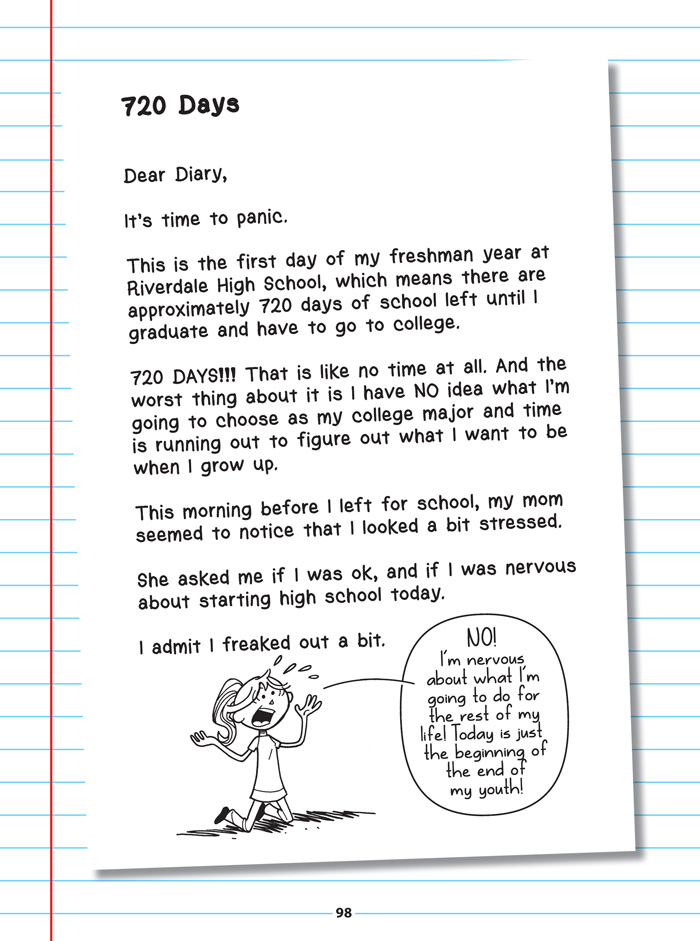 720 Days
Dear Diary,
It's time to panic.
This is the first day of my freshman year at
Riverdale High School, which means there are
approximately 720 days of school left until I
graduate and have to go to college.
720 DAYS!!! That is like no time at all. And the
worst thing about it is I have NO idea what I'm
going to choose as my college major and time
is running out to figure out what I want to be
when I grow up.
This morning before I left for school, my mom
seemed to notice that I looked a bit stressed.
She asked me if I was ok, and if I was nervous
about starting high school today.
I admit I freaked out a bit.
NO!
I'm nervous
about what I'm
going to do for
the rest of my
life! Today is just
the beginning of
the end of
my youth!
98